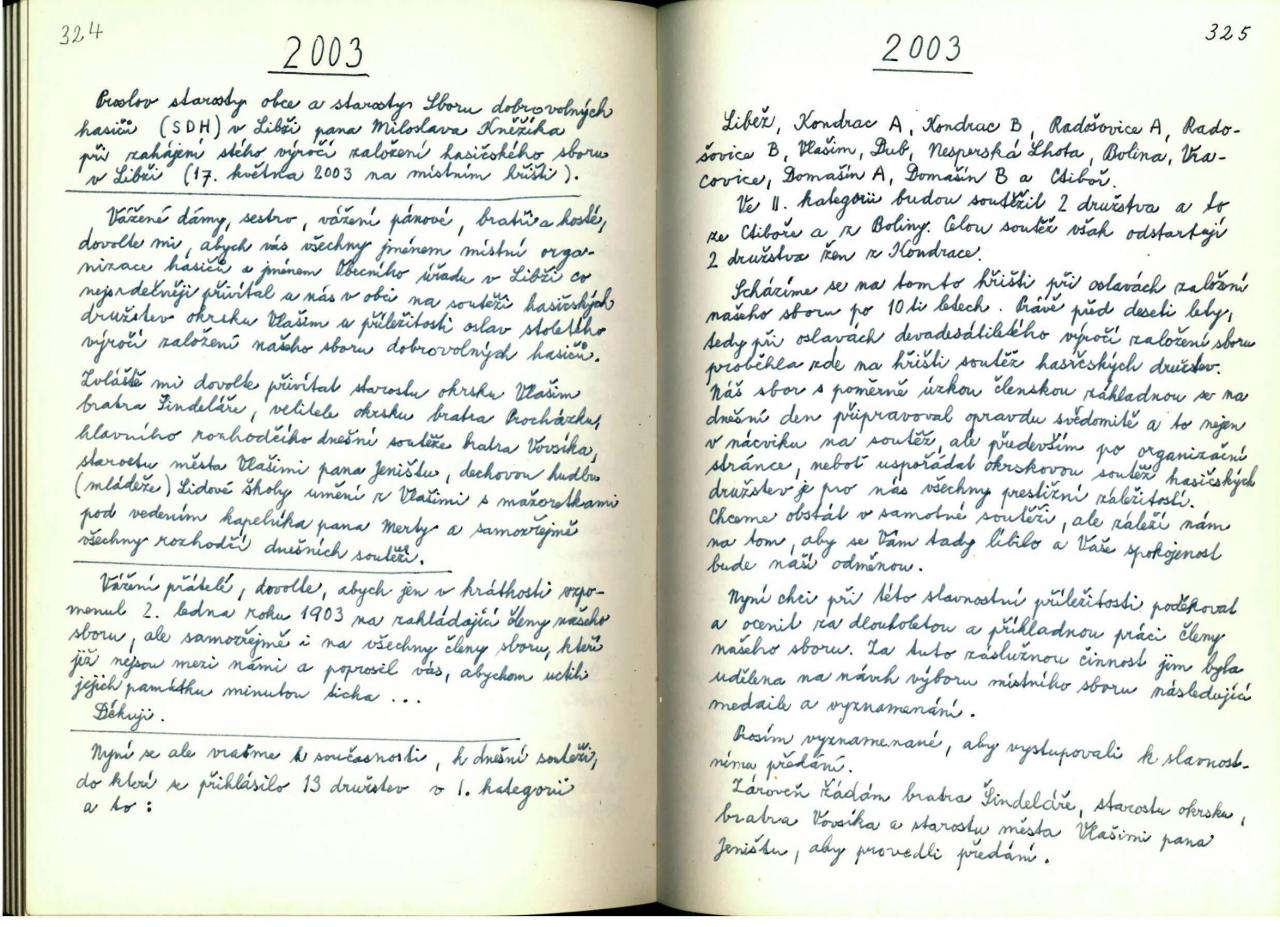 324
2003
Proslov starosty obce a starosty Sboru dobrovolných
hasičů (SDH) v Libži pana Miloslava Kněžíka
při zahájení stého výročí založení hasičského sboru
v Libži (17. května 2003 na místním hřišti).
Vážené dámy, sestro, vážení pánové, bratři a hosté,
dovolte mi, abych vás všechny jménem místní orga-
nizace hasičů a jménem Obecního úřadu v Libži co
nejsrdečněji přivítal u nás v obci na soutěži hasičských
družstev okrsku Vlašim u příležitosti oslav stoletého
výročí založení našeho sboru dobrovolných hasičů.
Zvláště mi dovolte přivítat starostu okrsku Vlašim
bratra Šindeláře, velitele okrsku bratra Procházku,
hlavního rozhodčího dnešní soutěže bratra Vovsíka,
starostu města Vlašimi pana Jeništu, dechovou hudbu
(mládeže) Lidové školy umění z Vlašimi s mažoretkami
pod vedením kapelníka pana Merty a samozřejmě
všechny rozhodčí dnešních soutěží.
Vážení přátelé, dovolte, abych jen v krátkosti vzpo-
menul 2. ledna roku 1903 na zakládající členy našeho
sboru, ale samozřejmě i na všechny členy sboru, kteří
již nejsou mezi námi a poprosil vás, abychom uctili
jejich památku minutou ticha ...
Děkuji.
Nyní se ale vraťme k současnosti, k dnešní soutěži,
do které se přihlásilo 13 družstev v 1. kategorii
a to :
325
2003
Libež, Kondrac A, Kondrac B, Radošovice A, Rado-
šovice B, Vlašim, Dub, Nesperská Lhota, Bolina, Vra-
covice, Domašín A, Domašín B a Ctiboř.
Ve II. kategorii budou soutěžit 2 družstva a to
ze Ctiboře a z Boliny. Celou soutěž však odstartují
2 družstva žen z Kondrace.
Scházíme se na tomto hřišti při oslavách založení
našeho sboru po 10ti letech. Právě před deseti lety,
tedy při oslavách devadesátiletého výročí založení sboru
proběhla zde na hřišti soutěž hasičských družstev.
Náš sbor s poměrně úzkou členskou základnou se na
dnešní den připravoval opravdu svědomitě a to nejen
v nácviku na soutěž, ale především po organizační
stránce, neboť uspořádat okrskovou soutěž hasičských
družstev je pro nás všechny prestižní záležitostí.
Chceme obstát v samotné soutěži, ale záleží nám
na tom, aby se Vám tady líbilo a Vaše spokojenost
bude naší odměnou.
Nyní chci při této slavnostní příležitosti poděkovat
a ocenit za dlouholetou a příkladnou práci členy
našeho sboru. Za tuto záslužnou činnost jim byla
udělena na návrh výboru místního sboru následující
medaile a vyznamenání.
Prosím vyznamenané, aby vystupovali k slavnost-
nímu předání.
Zároveň žádám bratra Šindeláře, starostu okrsku,
bratra Vovsíka a starostu města Vlašimi pana
Jeništu, aby provedli předání.